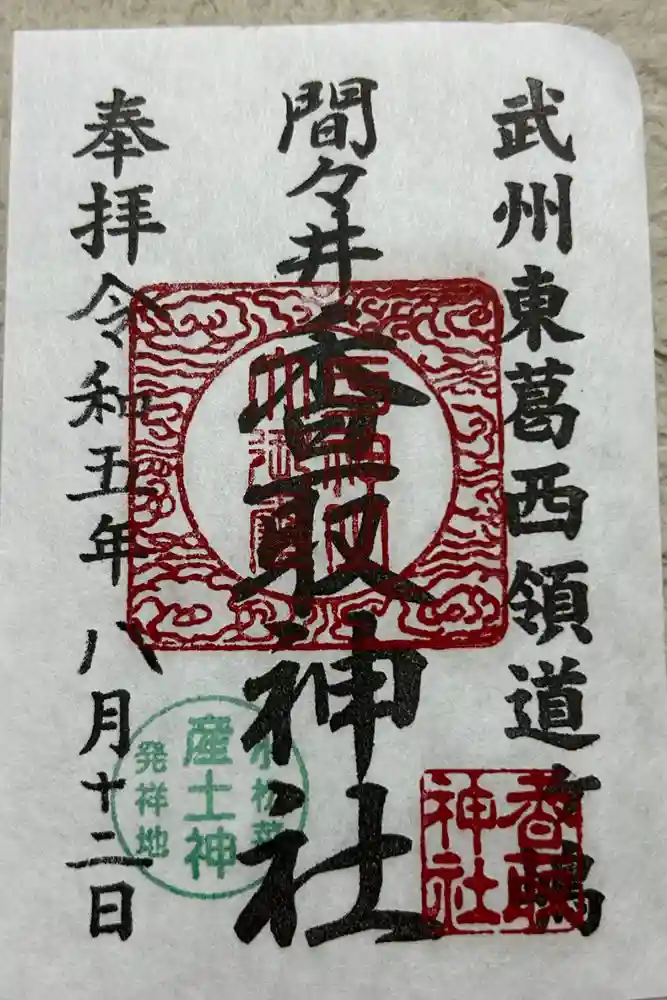 武州東葛西領道ヶ嶋
間々井
香取神社
奉拝
令和五年 八月十二日
香取
神社
小松菜
産土神
発祥地